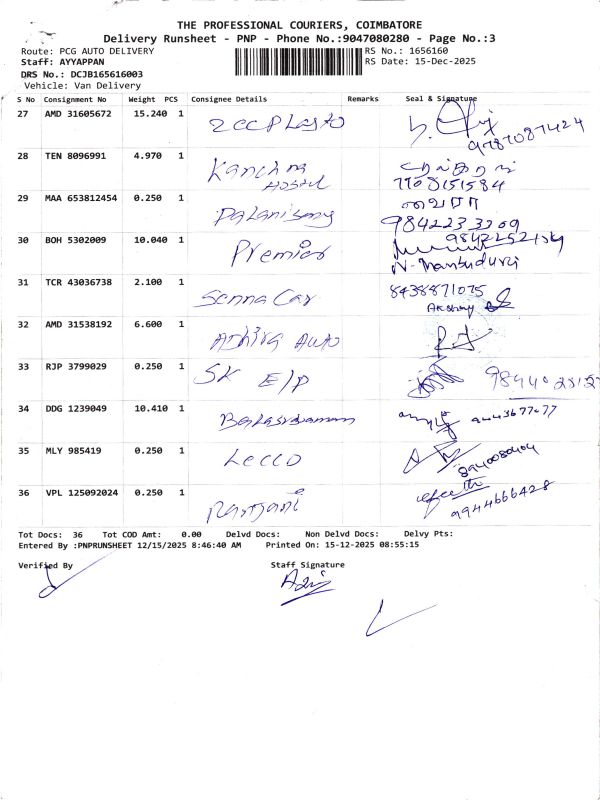 THE PROFESSIONAL COURIERS, COIMBATORE
Delivery Runsheet - PNP - Phone No.:9047080280 - Page No.:3
Route: PCG AUTO DELIVERY RS No.: 1656160
Staff: AYYAPPAN RS Date: 15-Dec-2025
DRS No.: DCJB165616003
Vehicle: Van Delivery
S No Consignment No Weight PCS Consignee Details Remarks Seal & Signature
27 AMD 31605672 15.240 1 9787087424
28 TEN 8096991 4.970 1 Kanchna Hostel
7708151584
29 MAA 653812454 0.250 1 Palanisamy
9842233209
30 BOH 5302009 10.040 1 Premier
N. Nambuduri
31 TCR 43036738 2.100 1 Senna Car 8438871075
Akshay
32 AMD 31538192 6.600 1 Athira Auto
33 RJP 3799029 0.250 1 SK E/P
34 DDG 1239049 10.410 1 Balasubramani
35 MLY 985419 0.250 1 Lecco 8940080404
36 VPL 125092024 0.250 1 Ranjani
9944666428
Tot Docs: 36 Tot COD Amt: 0.00 Delvd Docs: Non Delvd Docs: Delvy Pts:
Entered By :PNPRUNSHEET 12/15/2025 8:46:40 AM Printed On: 15-12-2025 08:55:15
Verified By Staff Signature